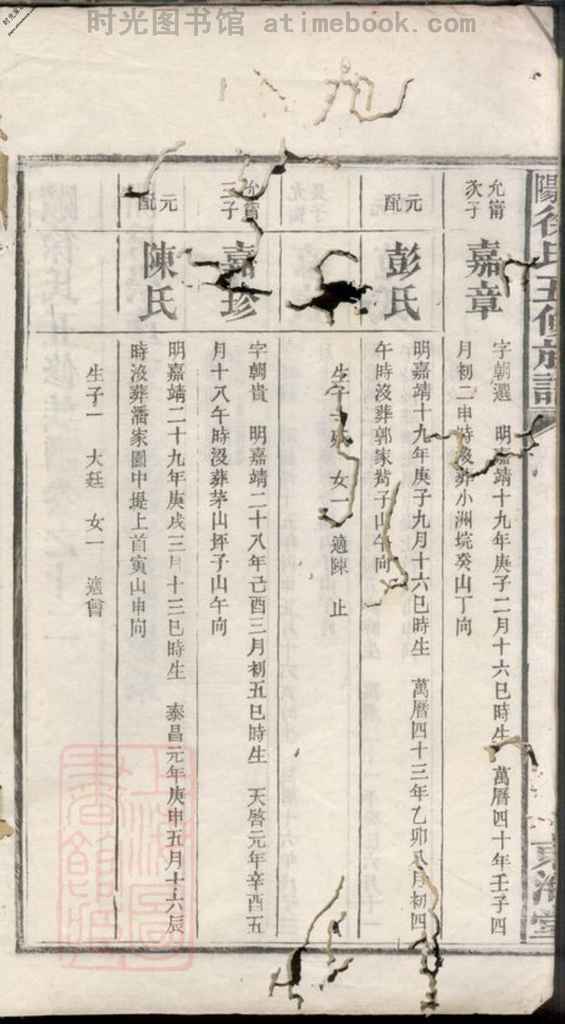 时光图书馆 atimebook.com
陽徐氏五修族譜
東海堂
允甯次子
嘉章
字朝選 明嘉靖十九年庚子二月十六巳時生 萬曆四十年壬子四
月初二申時沒葬小洲垸癸山丁向
元配
彭氏
明嘉靖十九年庚子九月十六巳時生 萬曆四十三年乙卯八月初四
午時沒葬郭家 子山午向
生子 女一 適陳 止
允甯三子
嘉珍
字朝貴 明嘉靖二十八年己酉三月初五巳時生 天啓元年辛酉五
月十八午時沒葬茅山坪子山午向
元配
陳氏
明嘉靖二十九年庚戌三月十三巳時生 泰昌元年庚申五月十六辰
時沒葬潘家圖中堤上首寅山申向
生子一 大廷 女一 適曾